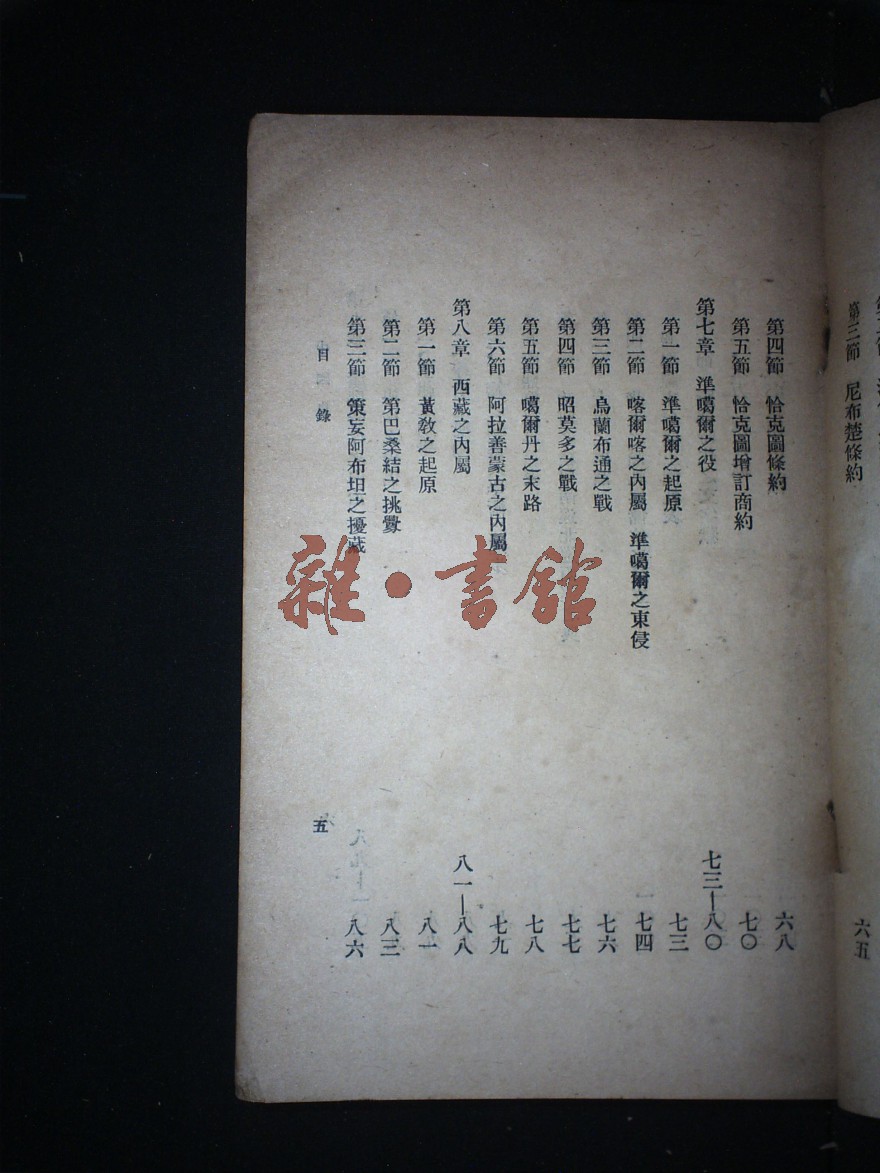 第三節 尼布楚條約 六五
第四節 恰克圖條約 六八
第五節 恰克圖增訂商約 七〇
第七章 準噶爾之役 七三—八〇
第一節 準噶爾之起原 七三
第二節 喀爾喀之內屬 準噶爾之東侵 七四
第三節 烏蘭布通之戰 七六
第四節 昭莫多之戰 七七
第五節 噶爾丹之末路 七八
第六節 阿拉善蒙古之內屬 七九
第八章 西藏之內屬 八一—八八
第一節 黃敎之起原 八一
第二節 第巴桑結之挑釁 八三
第三節 策妄阿布坦之擾藏 八六
目錄 五
雜·書館